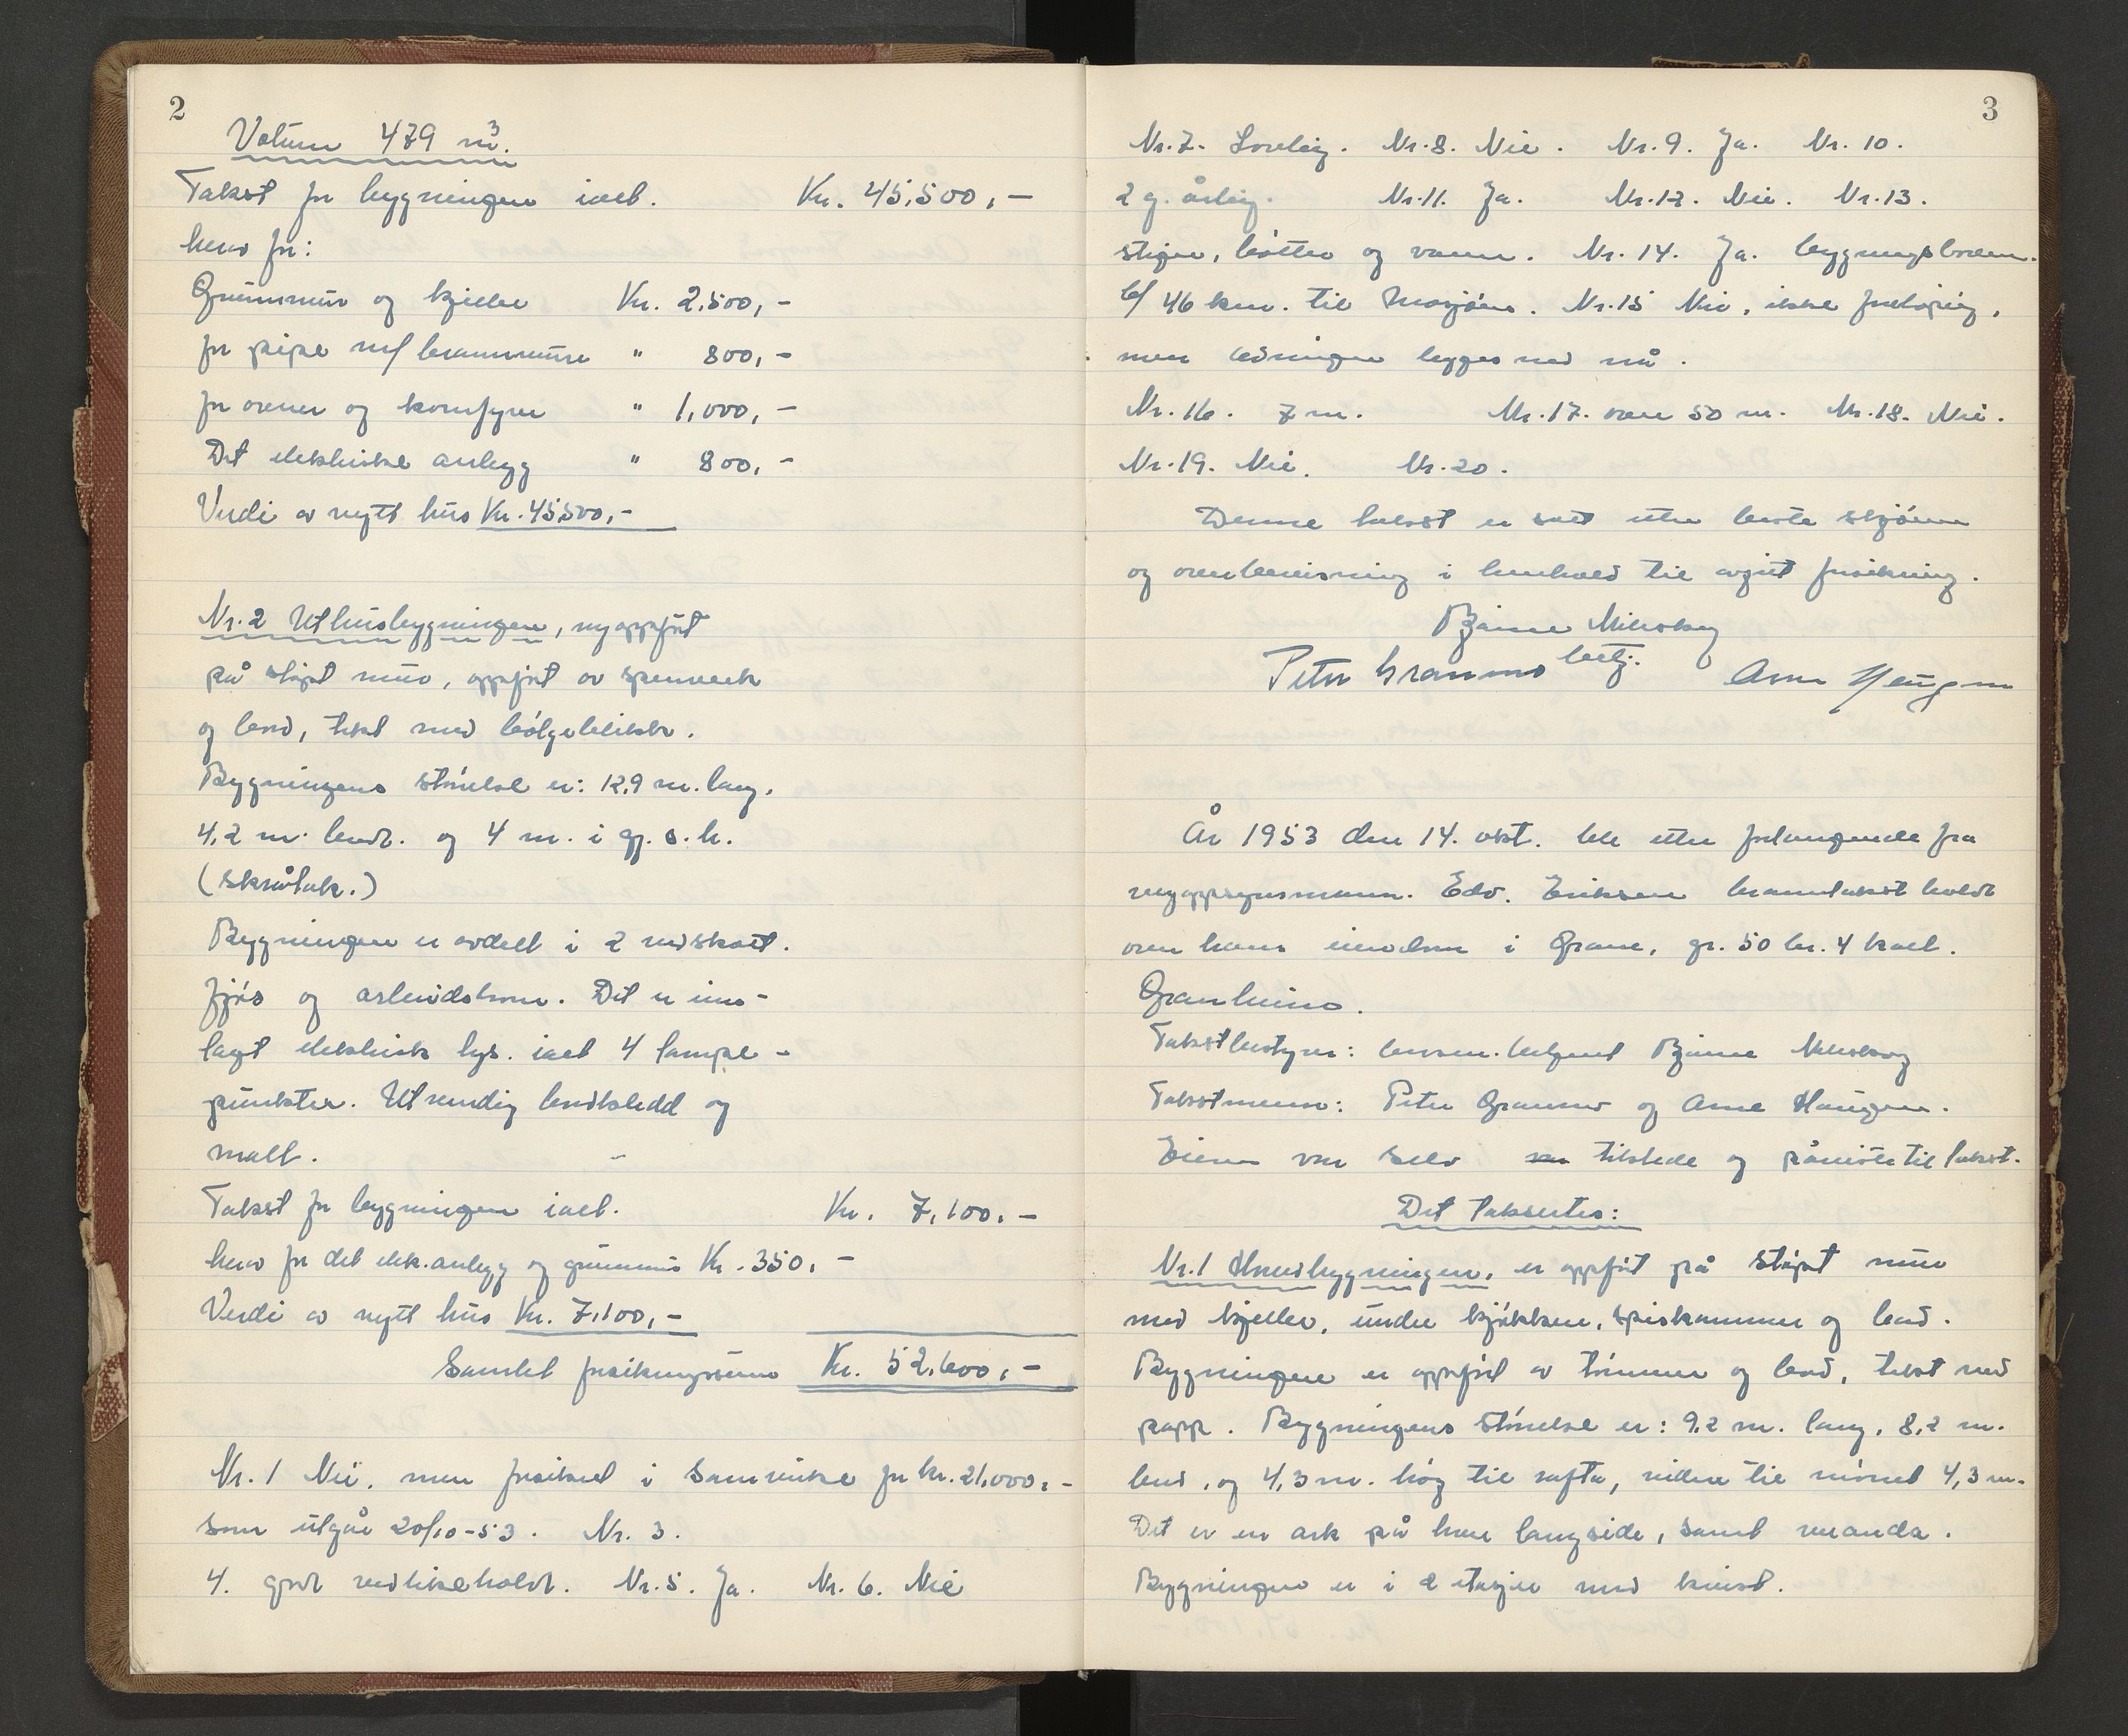 2
Volum 479 m³.
Takst for bygningen ialt. Kr. 45.500,-
herav for:
Grunnmur og kjeller Kr. 2.500,-
for pipe m/ brannmure " 800,-
for ovner og komfyrer " 1.000,-
Det elektriske anlegg " 800,-
Verdi av nytt hus Kr. 45.500,-
Nr. 2 Uthusbygningen, nyoppført
på støpt mur, oppført av spenverk
og bord, tekt med bølgeblikk.
Bygningens størrelse er: 12,9 m. lang,
4,2 m. bred. og 4 m. i gj. s. h.
(skråtak.)
Bygningen er avdelt i 2 vedskåt.
fjøs og arbeidsrom. Det er inn-
lagt elektrisk lys. ialt 4 lampe-
punkter. Utvendig bordkledd og
malt.
Takst for bygningen ialt. Kr. 7.100,-
herav for det elek. anlegg og grunnmur Kr. 350,-
Verdi av nytt hus Kr. 7.100,-
Samlet forsikringssum Kr. 52.600,-
Nr. 1 Nei, men forsikret i Samvirke for kr. 21.000,-
som utgår 20/10-53. Nr. 3.
4. godt vedlikeholdt. Nr. 5. Ja. Nr. 6. Nei
3
Nr. 7. Lovlig. Nr. 8. Nei. Nr. 9. Ja. Nr. 10.
2 g. årlig. Nr. 11. Ja. Nr. 12. Nei. Nr. 13.
stiger, bøtter og vann. Nr. 14. Ja. bygningsbrann.
b/ 46 km. til Mosjøen. Nr. 15 Nei, ikke foreløpig,
men ledningen legges ned nå.
Nr. 16. 7 m. Nr. 17. over 50 m. Nr. 18. Nei.
Nr. 19. Nei. Nr. 20.
Denne takst er satt etter beste skjønn
og overbevisning i henhold til avgitt forsikring.
Bjarne
Peter Granmo betj. Arne Haugen
År 1953 den 14. okt. ble etter forlangende fra
vegoppsynsmann. Edv. Eriksen branntakst holdt
over hans eiendom i Grane, gr. 50 br. 4 kalt.
Granheim.
Takstbestyrer: lensm. betjent Bjarne
Takstmenn: Peter Granmo og Arne Haugen.
Eieren var selv tilstede og påviste til takst.
Det taksertes:
Nr. 1 Hovedbygningen, er oppført på støpt mur
med kjeller, under kjøkken, spiskammer og bad.
Bygningen er oppført av tømmer og bord, tekt med
papp. Bygningens størrelse er: 9,2 m. lang, 8,2 m.
bred, og 4,3 m. høg til rafta, videre til mønet 4,3 m.
Det er en ark på hver langside, samt veranda.
Bygningen er i 2 etasjer med kvist.